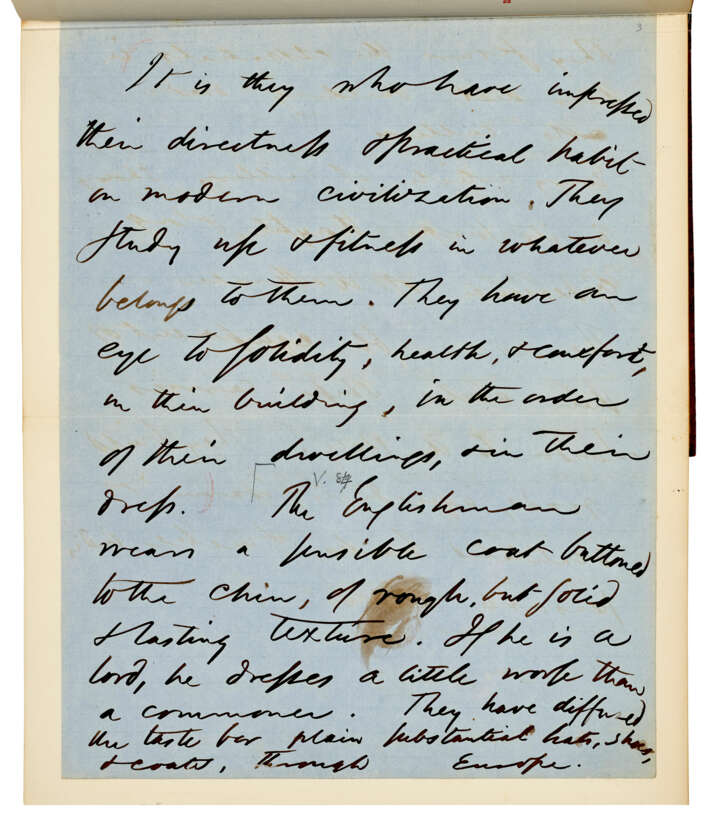 3
It is they who have impressed
their directness & practical habit
on modern civilization. They
study use & fitness in whatever
belongs to them. They have an
eye to solidity, health, & comfort,
in their building, in the order
of their dwellings, & in their
V. 84
dress. The Englishman
wears a sensible coat buttoned
to the chin, of rough, but solid
& lasting texture. If he is a
lord, he dresses a little worse than
a commoner. They have diffused
the taste for plain substantial hats, shoes,
& coats, through Europe.